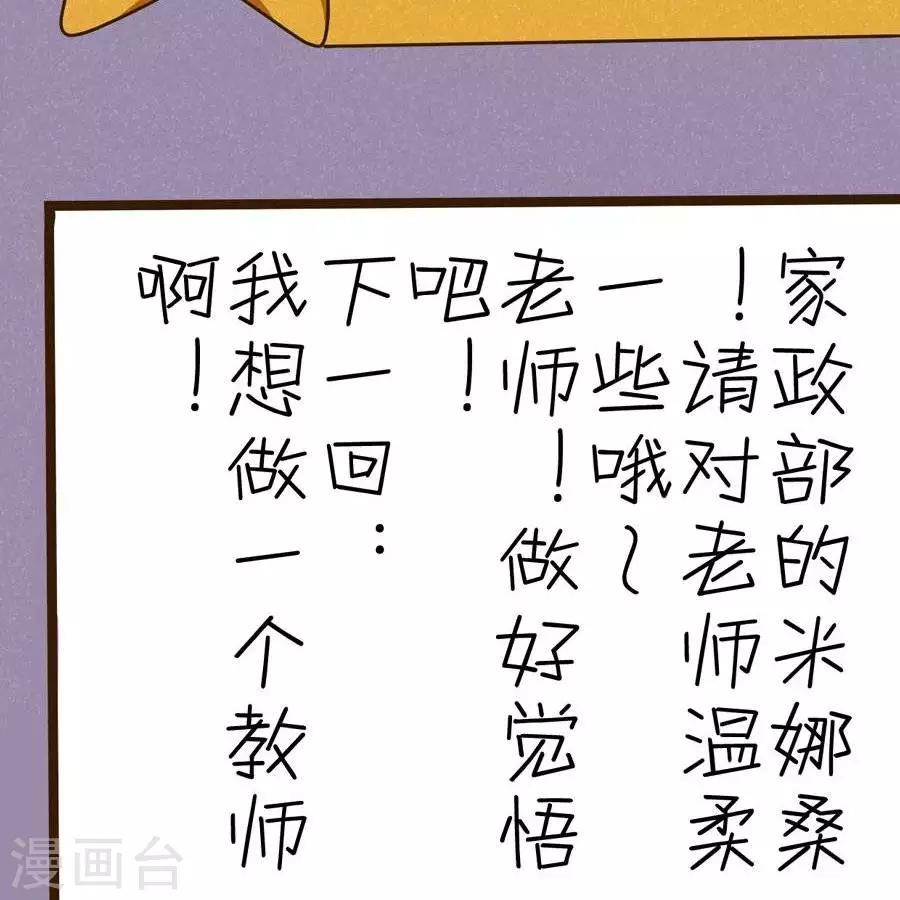 家政部的米娜桑
！请对老师温柔
一些哦～
老师！做好觉悟
吧！
下一回：
我想做一个教师
啊！
漫画台